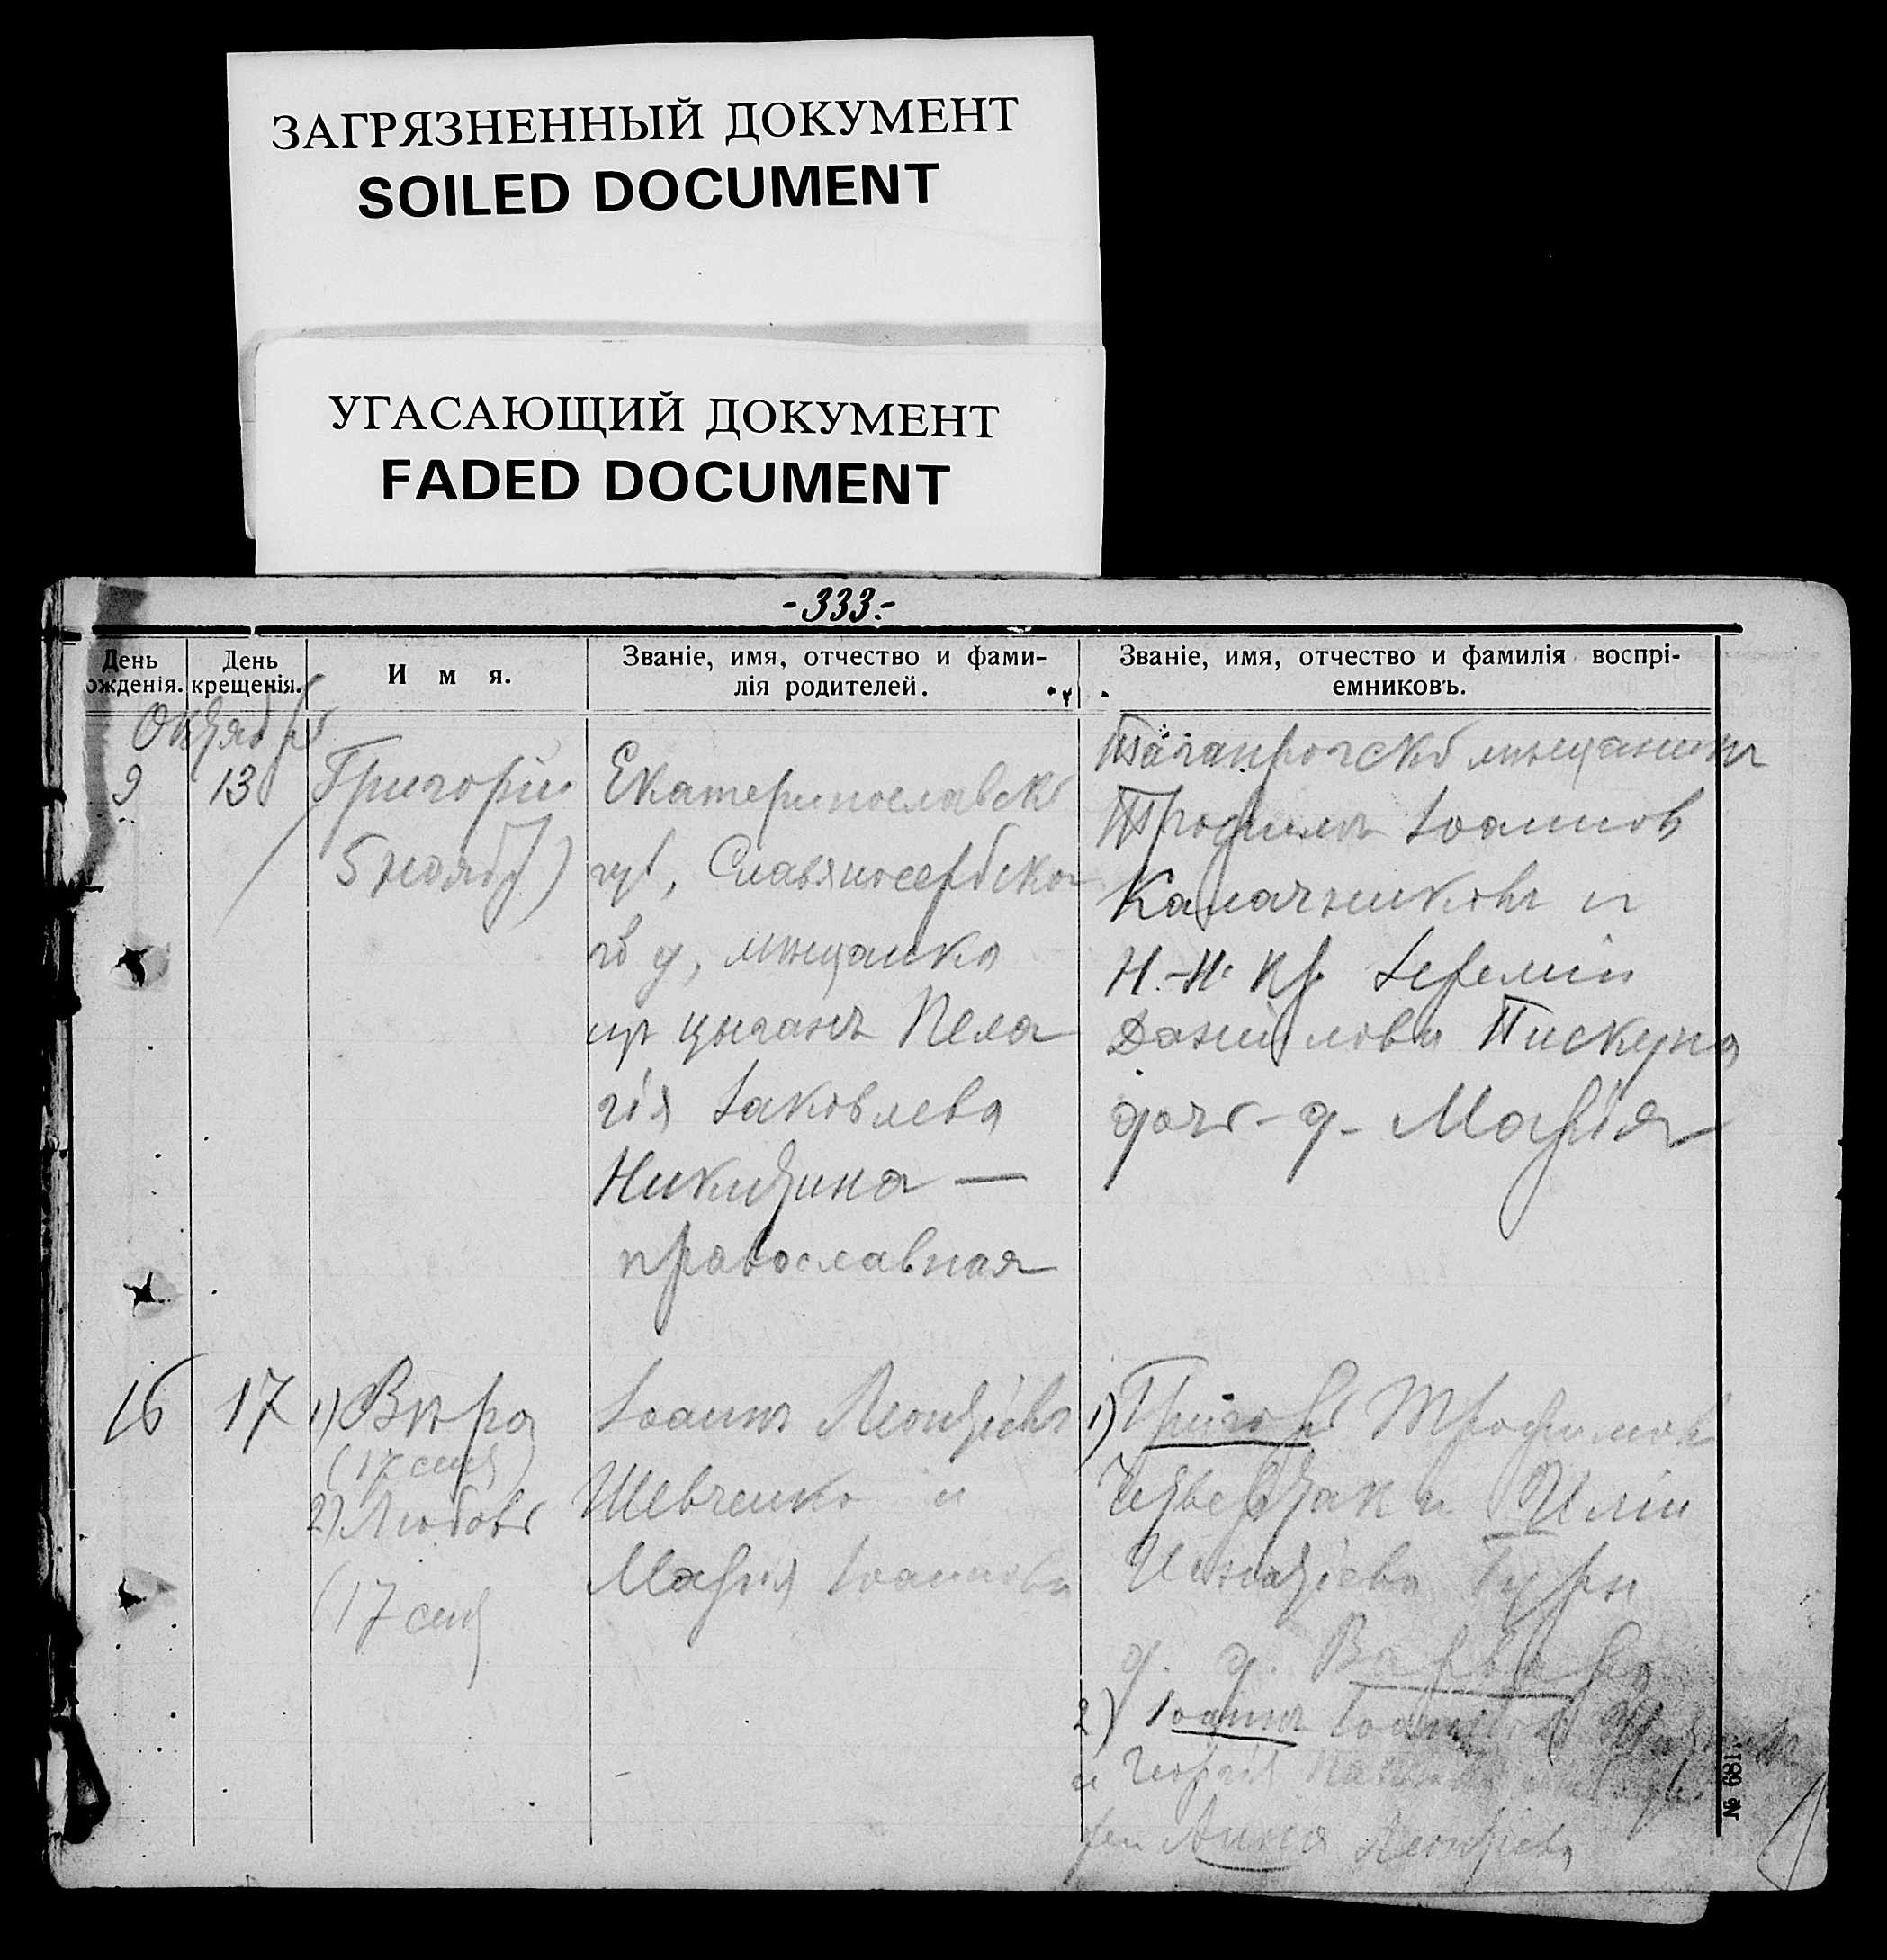 ЗАГРЯЗНЕННЫЙ ДОКУМЕНТ
SOILED DOCUMENT
УГАСАЮЩИЙ ДОКУМЕНТ
FADED DOCUMENT
-333.-
День ожденія.
День крещенія.
И м я.
Званіе, имя, отчество и фами-
лія родителей.
Званіе, имя, отчество и фамилія воспрі-
емниковъ.
Октябрь
9
13
Григорій
5 ноябр)
Екатеринославск
губ, Славяносербско
го у, мѣщанка
из цыганъ Пела
гія Іаковлева
Никитина —
православная
Таганрогскій мѣщанинъ
Трофимъ Іоаннов
Калачниковъ и
Н.-Н. кр Іереміи
Даниілова Пискуна
дочь - д - Марія
16
17
1) Вѣра
(17 сент)
2) Любовь
(17 сент
Іоаннъ Леонтіевъ
Шевченко и
Марія Іоаннова
1) Григорій Трофимов
Четвертак и Иліи
Игнатіева Гуры
д. д. Варвара
2) Іоаннъ Іоаннов
и Георгія
Анна Леонтіева
№ 681.